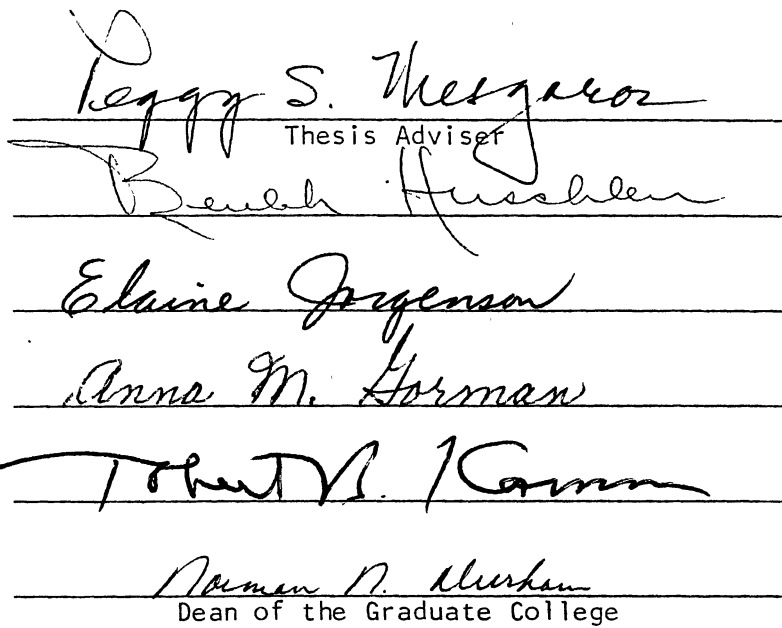 Peggy S. Meszaros
Thesis Adviser
Beulah Hirschlein
Elaine Jorgenson
Anna M. Gorman
Robert B. Kamm
Norman N. Durham
Dean of the Graduate College